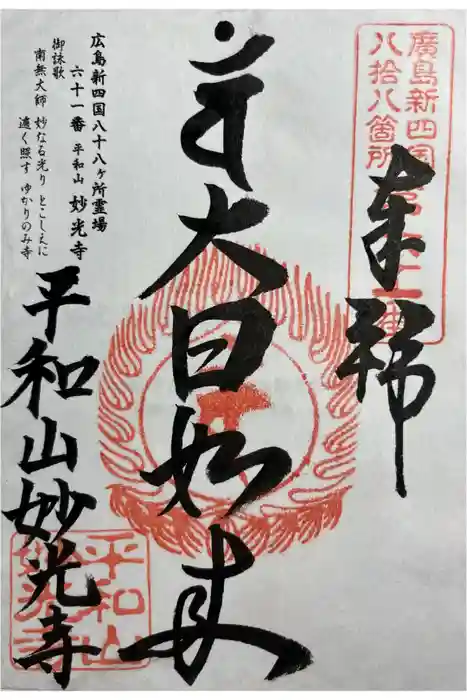 廣島新四国
八拾八箇所
奉拝
大日如来
広島新四国八十八ヶ所霊場
六十一番 平和山 妙光寺
御詠歌
南無大師 妙なる光り とこしえに
遍く照す ゆかりのみ寺
平和山妙光寺
平和山
妙光寺